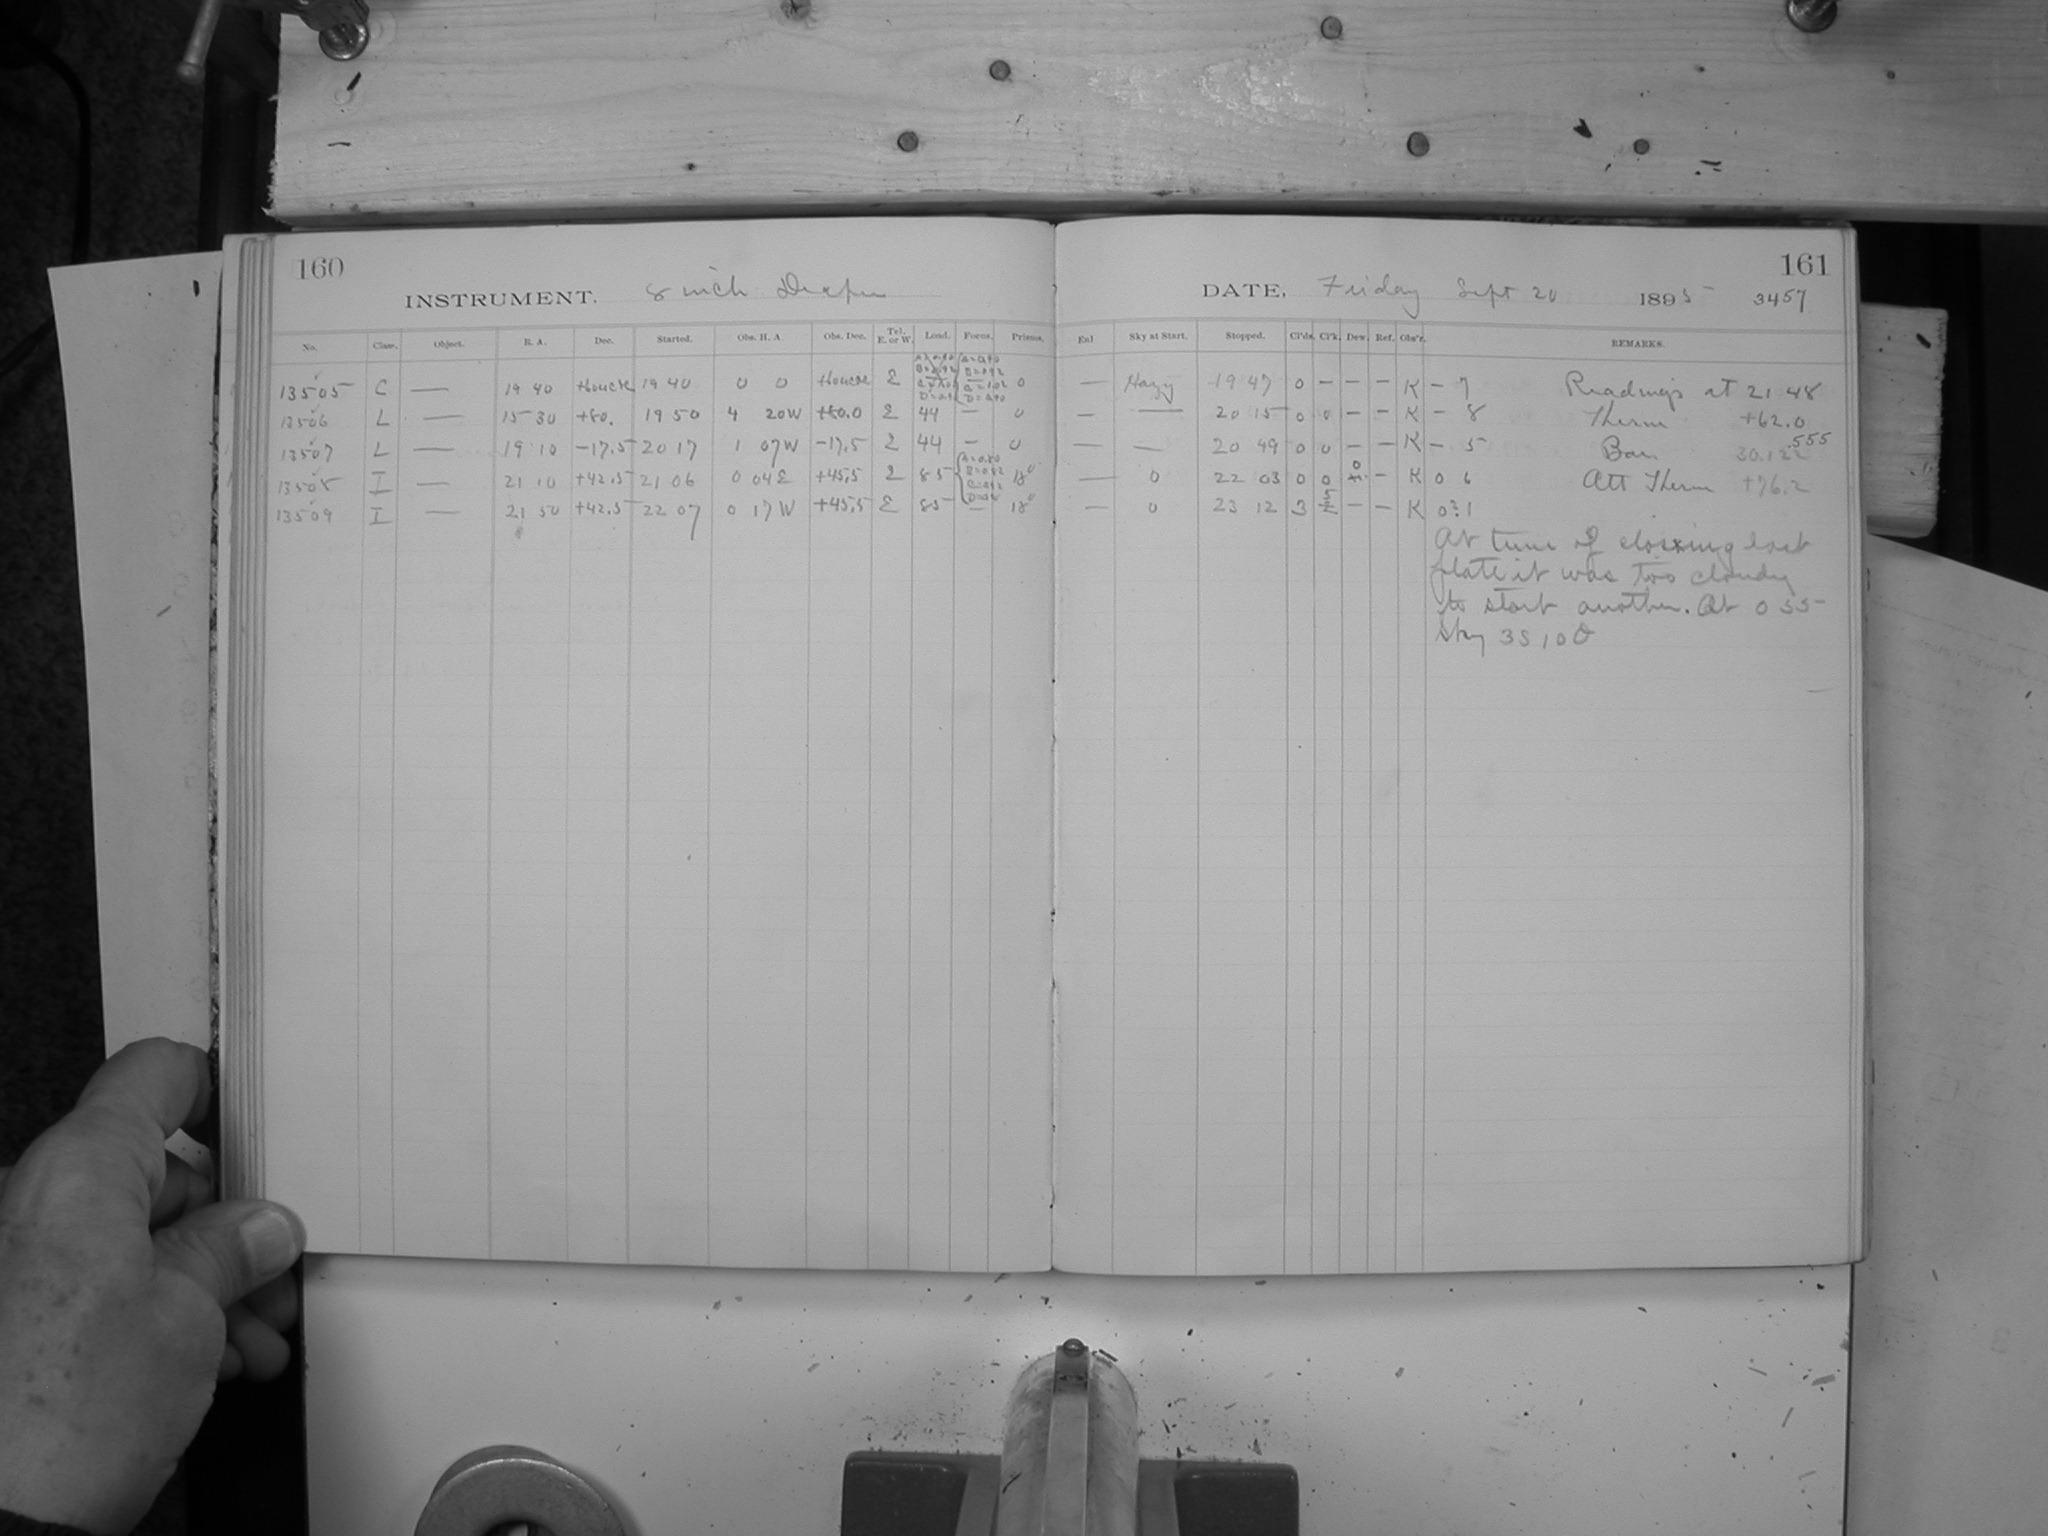 160
INSTRUMENT. 8 inch Draper
No. Class. Object. R. A. Dec. Started. Obs. H. A. Obs. Dec. Tel. E. or W. Load. Focus. Prisms.
13505 C — 19 40 19 40 0 0 E 0
13506 L — 15 30 +80. 19 50 4 20W +80.0 E 44 — 0
13507 L — 19 10 −17.5 20 17 1 07W −17.5 E 44 — 0
13508 I — 21 10 +42.5 21 06 0 04E +45.5 E 85
13509 I — 21 50 +42.5 22 07 0 17W +45.5 E 85 —
161
DATE, Friday Sept 20 1895 3457
Sky at Start. Stopped. Cl'ds. Cl'k. Dew. Ref. Obs'r. REMARKS.
— Hazy 19 47 0 – – – K – 7 Readings at 21 48
— — 20 15 0 0 – – K – 8 Therm +62.0
— — 20 49 0 0 – – K – 5 Bar. 30.122 .555
— 0 22 03 0 0 – K 0 6 Att Therm +76.2
— 0 23 12 3 – – K 0?1
At time of closing last
plate it was too cloudy
to start another. At 0 55
Sky 3S10